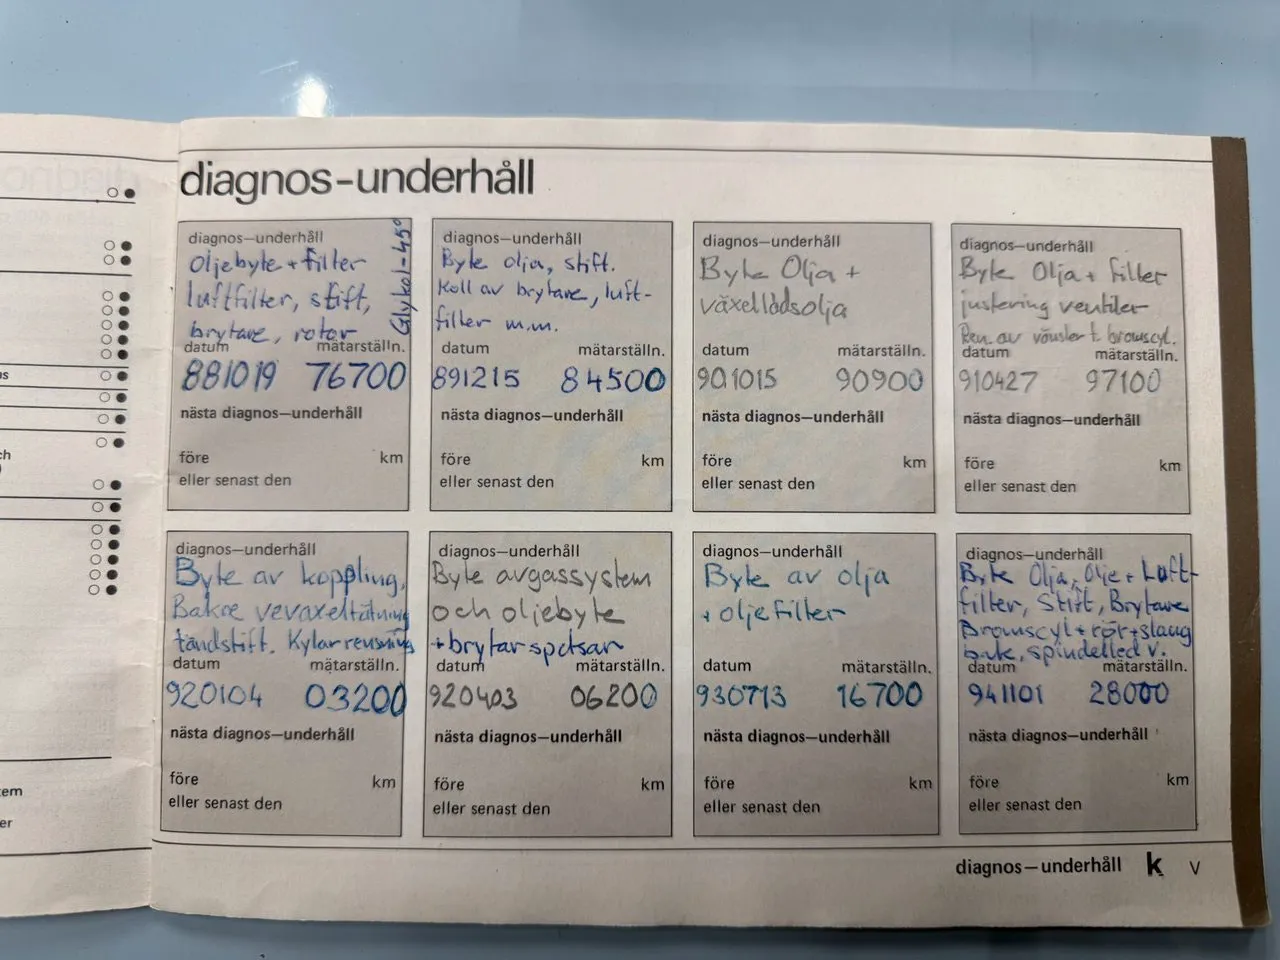 diagnos-underhåll
diagnos—underhåll
Oljebyte + filter
luftfilter, stift,
brytare, rotor
Glykol -45°
datum mätarställn.
881019 76700
nästa diagnos—underhåll
före km
eller senast den
diagnos—underhåll
Byte olja, stift.
Koll av brytare, luft-
filter m.m.
datum mätarställn.
891215 84500
nästa diagnos—underhåll
före km
eller senast den
diagnos—underhåll
Byte Olja +
växellådsolja
datum mätarställn.
901015 90900
nästa diagnos—underhåll
före km
eller senast den
diagnos—underhåll
Byte Olja + filter
justering ventiler
Ren. av vänster f. bromscyl.
datum mätarställn.
910427 97100
nästa diagnos—underhåll
före km
eller senast den
diagnos—underhåll
Byte av koppling,
Bakre vevaxeltätning
tändstift. Kylarrensning
datum mätarställn.
920104 03200
nästa diagnos—underhåll
före km
eller senast den
diagnos—underhåll
Byte avgassystem
och oljebyte
+ brytarspetsar
datum mätarställn.
920403 06200
nästa diagnos—underhåll
före km
eller senast den
diagnos—underhåll
Byte av olja
+ oljefilter
datum mätarställn.
930713 16700
nästa diagnos—underhåll
före km
eller senast den
diagnos—underhåll
Byte Olja, Olje + Luft-
filter, Stift, Brytare
Bromscyl + rör + slang
bak, spindelled v.
datum mätarställn.
941101 28000
nästa diagnos—underhåll
före km
eller senast den
diagnos—underhåll k V